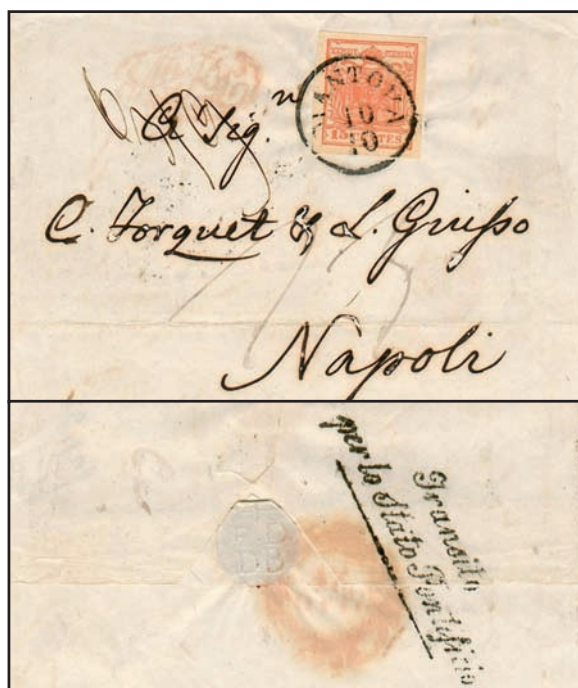 MANTOVA
10
10
15 CENTES
A Sig.
C. Forquet & L. Giusso
Napoli
Transito
per lo Stato Pontificio